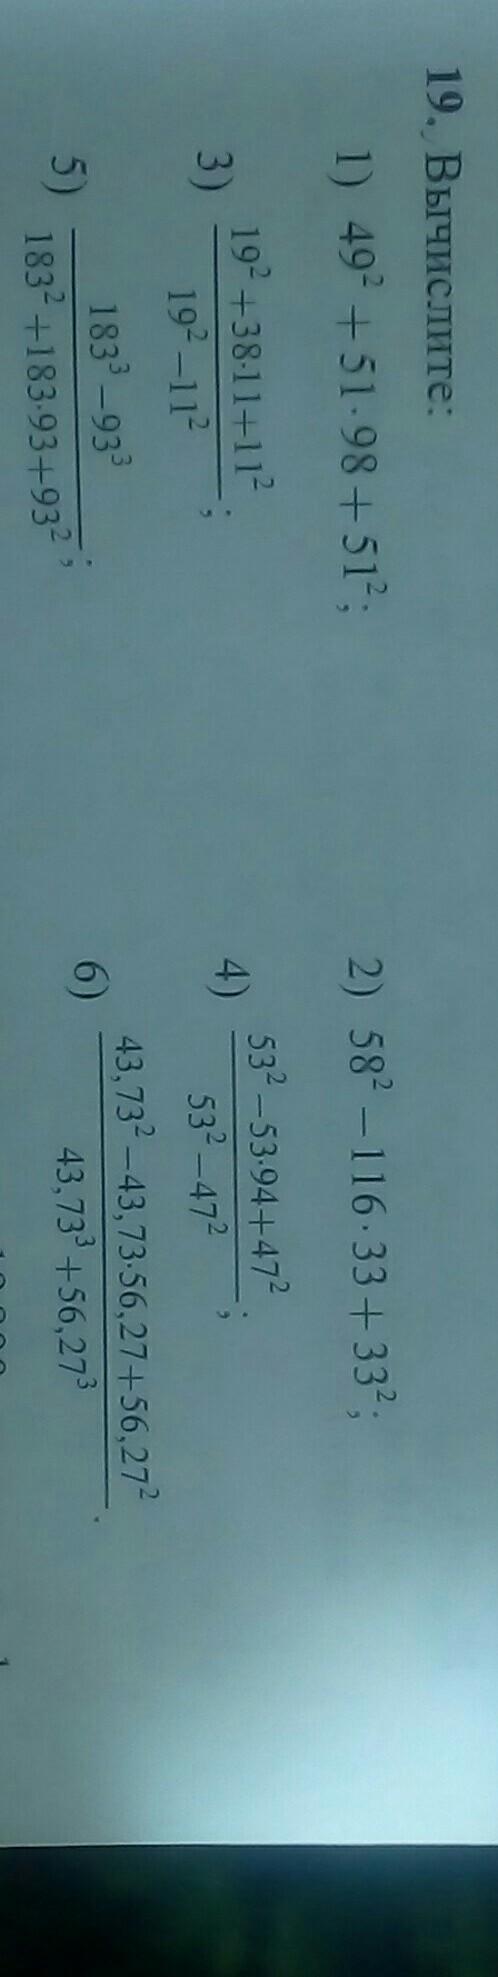 19. Вычислите:
1) 49² + 51·98 + 51²;
2) 58² − 116·33 + 33²;
3) (19² + 38·11 + 11²) / (19² − 11²);
4) (53² − 53·94 + 47²) / (53² − 47²);
5) (183³ − 93³) / (183² + 183·93 + 93²);
6) (43,73² − 43,73·56,27 + 56,27²) / (43,73³ + 56,27³).